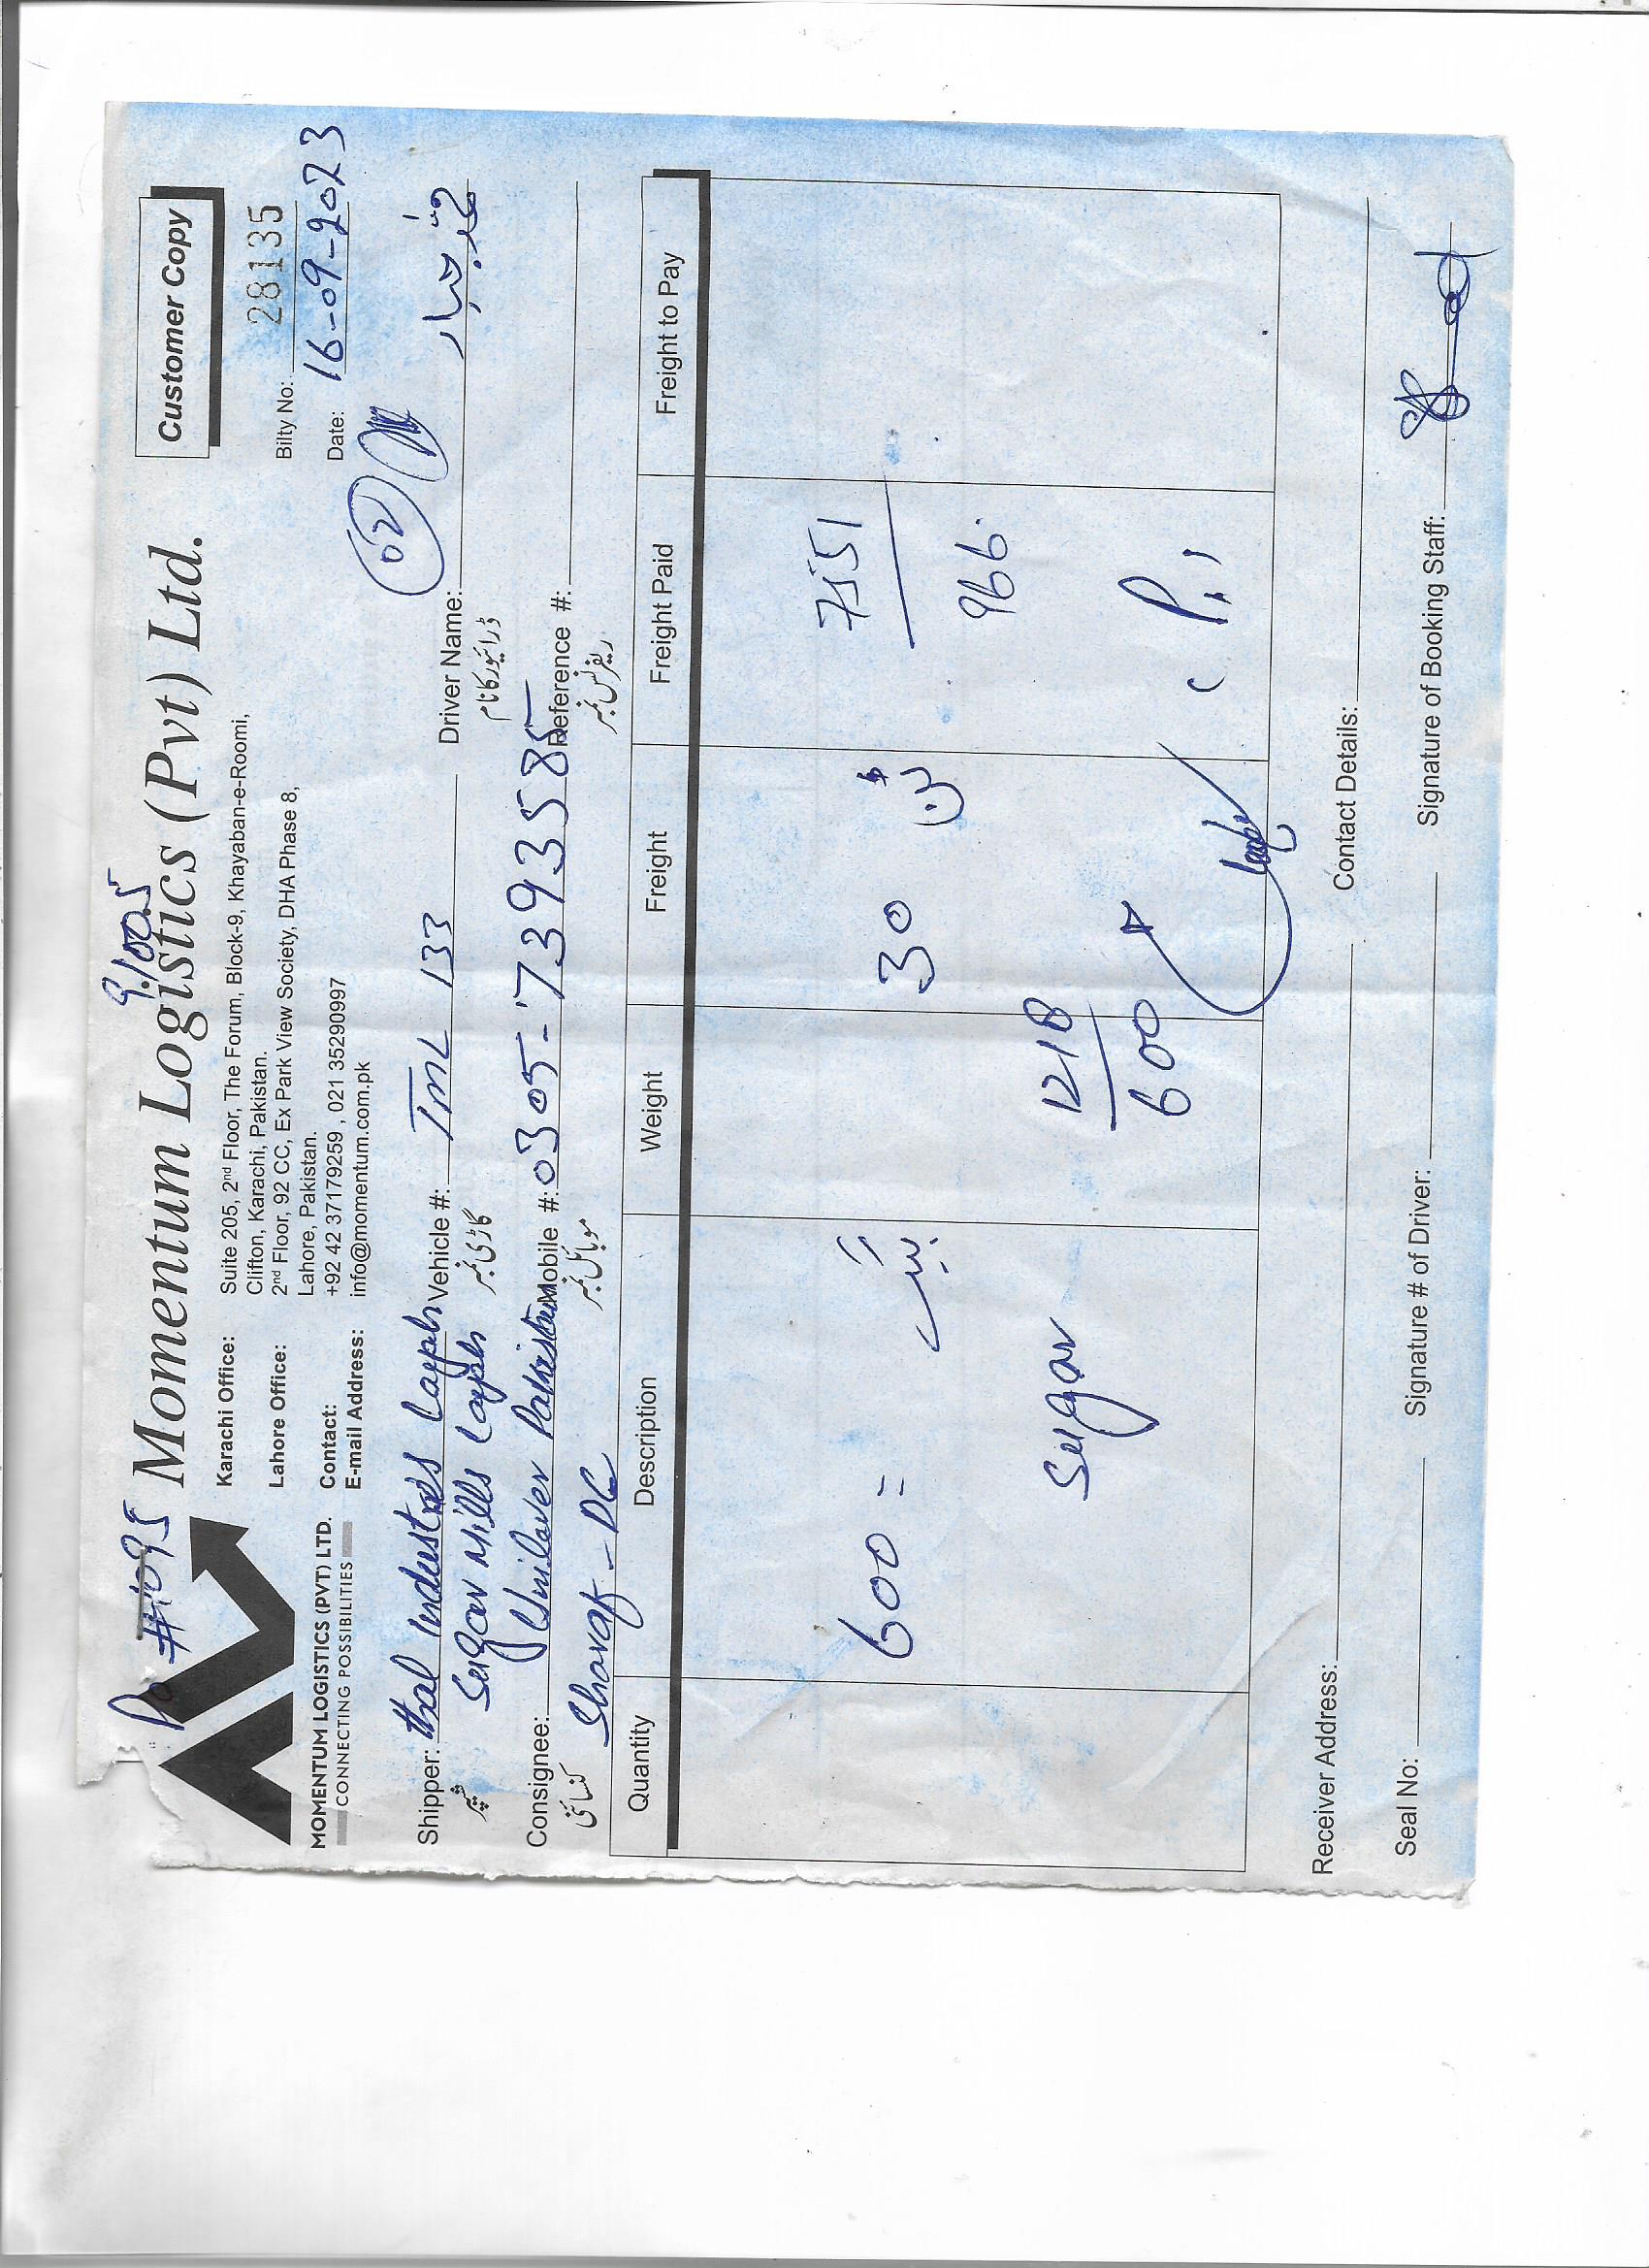 Po #1095
9/005
Momentum Logistics (Pvt) Ltd.
Customer Copy
MOMENTUM LOGISTICS (PVT) LTD.
CONNECTING POSSIBILITIES
Karachi Office: Suite 205, 2nd Floor, The Forum, Block-9, Khayaban-e-Roomi,
Clifton, Karachi, Pakistan.
Lahore Office: 2nd Floor, 92 CC, Ex Park View Society, DHA Phase 8,
Lahore, Pakistan.
Contact: +92 42 37179259 , 021 35290997
E-mail Address: info@momentum.com.pk
Bilty No: 28135
Date: 16-09-2023
02
Shipper: thal Industries Layyah
شپر
Sugar Mills Layyah
Vehicle #: TML 133
گاڑی نمبر
Driver Name:
ڈرائیور کا نام
Consignee: Unilever Pakistan
کنسائی
Sharaf-DC
Mobile #: 0305-7393585
موبائل نمبر
Reference #:
ریفرنس نمبر
Quantity Description Weight Freight Freight Paid Freight to Pay
600 = بیگ 30 ٹن 7551
966
Sugar 1218
600
Receiver Address: Contact Details:
Seal No: Signature # of Driver: Signature of Booking Staff: